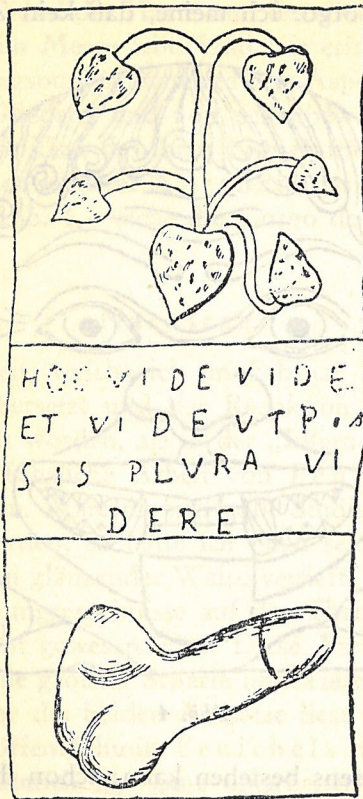 HOC VIDE VIDE
ET VIDE VT
SIS PLVRA VI
DERE